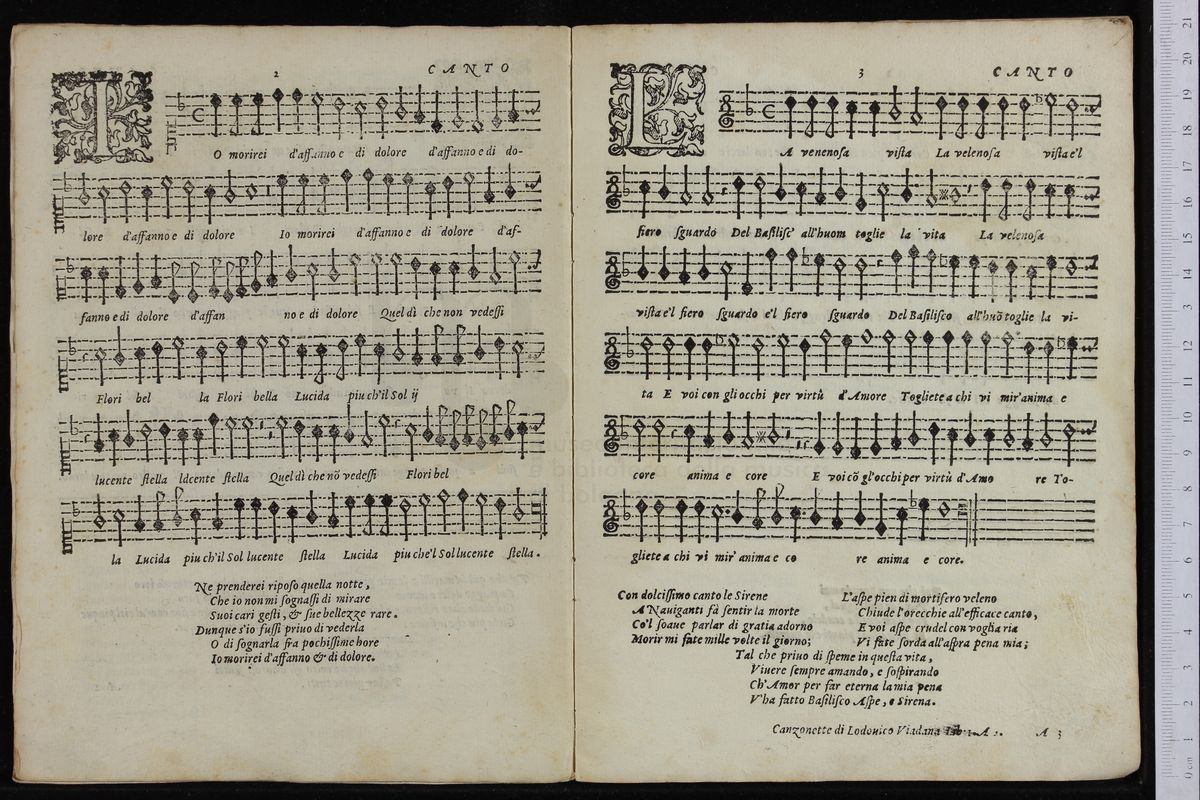 2 CANTO
IO morirei d'affanno e di dolore d'affanno e di do-
lore d'affanno e di dolore Io morirei d'affanno e di dolore d'af-
fanno e di dolore d'affan no e di dolore Quel dì che non vedeſſi
Flori bel la Flori bella Lucida piu ch'il Sol ij
lucente ſtella ldcente ſtella Quel dì che nõ vedeſſi Flori bel
la Lucida piu ch'il Sol lucente ſtella Lucida piu che'l Sol lucente ſtella.
Ne prenderei ripoſo quella notte,
Che io non mi ſognaſſi di mirare
Suoi cari geſti, & ſue bellezze rare.
Dunque s'io fuſſi priuo di vederla
O di ſognarla fra pochiſſime hore
Io morirei d'affanno & di dolore.
3 CANTO
LA venenoſa viſta La velenoſa viſta e'l
fiero ſguardo Del Baſiliſc' all'huom toglie la vita La velenoſa
viſta e'l fiero ſguardo e'l fiero ſguardo Del Baſiliſco all'huõ toglie la vi-
ta E voi con gli occhi per virtù d'Amore Togliete a chi vi mir'anima e
core anima e core E voi cõ gl'occhi per virtù d'Amo re To-
gliete a chi vi mir' anima e co re anima e core.
Con dolciſſimo canto le Sirene
A Nauiganti fà ſentir la morte
Co'l ſoaue parlar di gratia adorno
Morir mi fate mille volte il giorno;
L'aſpe pien di mortifero veleno
Chiude l'orecchie all'efficace canto,
E voi aſpe crudel con voglia ria
Vi fate ſorda all'aſpra pena mia;
Tal che priuo di ſpeme in queſta vita,
Viuere ſempre amando, e ſoſpirando
Ch'Amor per far eterna la mia pena
V'ha fatto Baſiliſco Aſpe, e Sirena.
Canzonette di Lodouico Viadana A 3